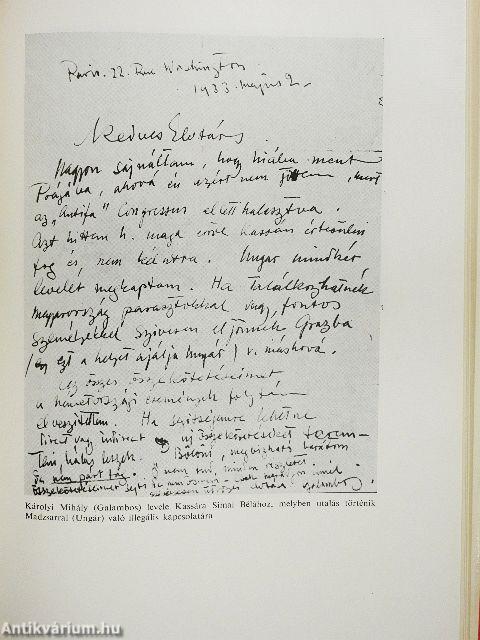 Páris. 22. Rue Washington
1933. május 2.
Kedves Elvtárs,
Nagyon sajnáltam, hogy hiába ment
Prágába, ahová én azért nem jöttem, mert
az „Antifa" Congressus el lett halasztva.
Azt hittem h. maga erről Kassán értesülni
fog és nem kél útra. Ungar mindkét
levelét megkaptam. Ha találkozhatnék
magyarország parasztokkal vagy fontos
személyekkel szívesen eljönnék Grazba
(és ezt a helyet ajálja Ungár) v. máshová.
Az összes összeköttetéseimet
a németországi események folytán
elveszítettem. Ha segítségemre lehetne
direct vagy indirect új összeköttetéseket terem-
teni, hálás leszek. Bölöni, megbízható barátom
de nem párt tag.
Galambos
Károlyi Mihály (Galambos) levele Kassára Simai Bélához, melyben utalás történik
Madzsarral (Ungár) való illegális kapcsolatára
Antikvárium.hu